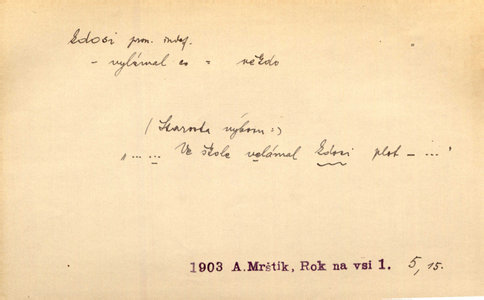 kdosi pron. indef.
– vylámal co = někdo
(Starosta výboru:)
"... ... Ve škole vylámal kdosi plot – ..."
1903 A.Mrštík, Rok na vsi 1. 5, 15.